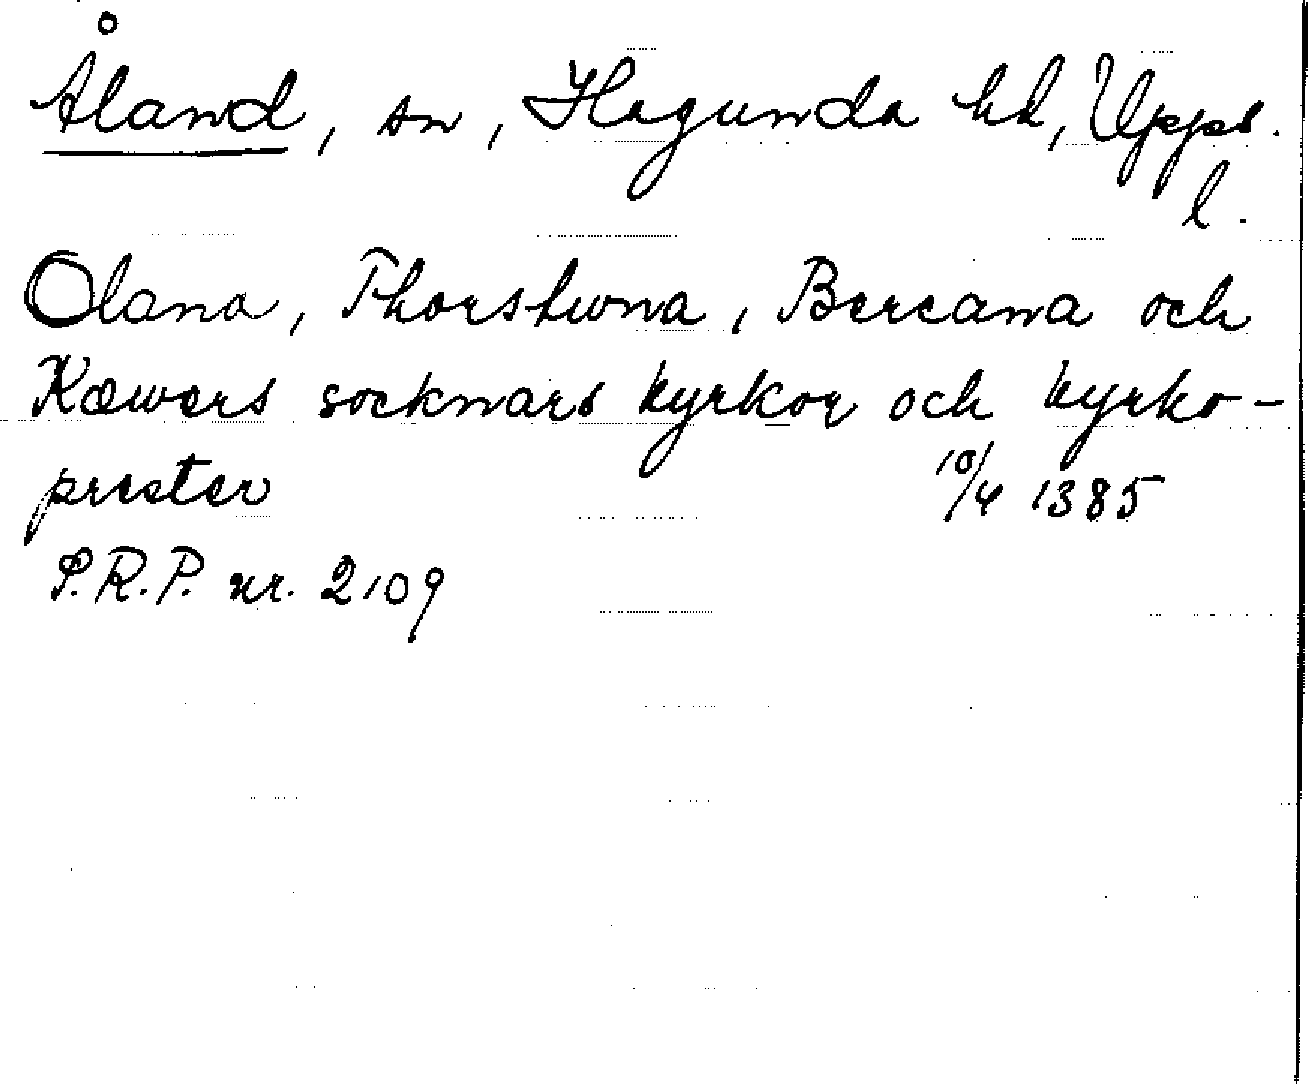 Åland, sn, Hagunda hd, Upps.
l.
Olana, Thorstuna, Bercana och
Kæwers socknars kyrkor och kyrko-
prester 10/4 1385
S.R.P. nr. 2109